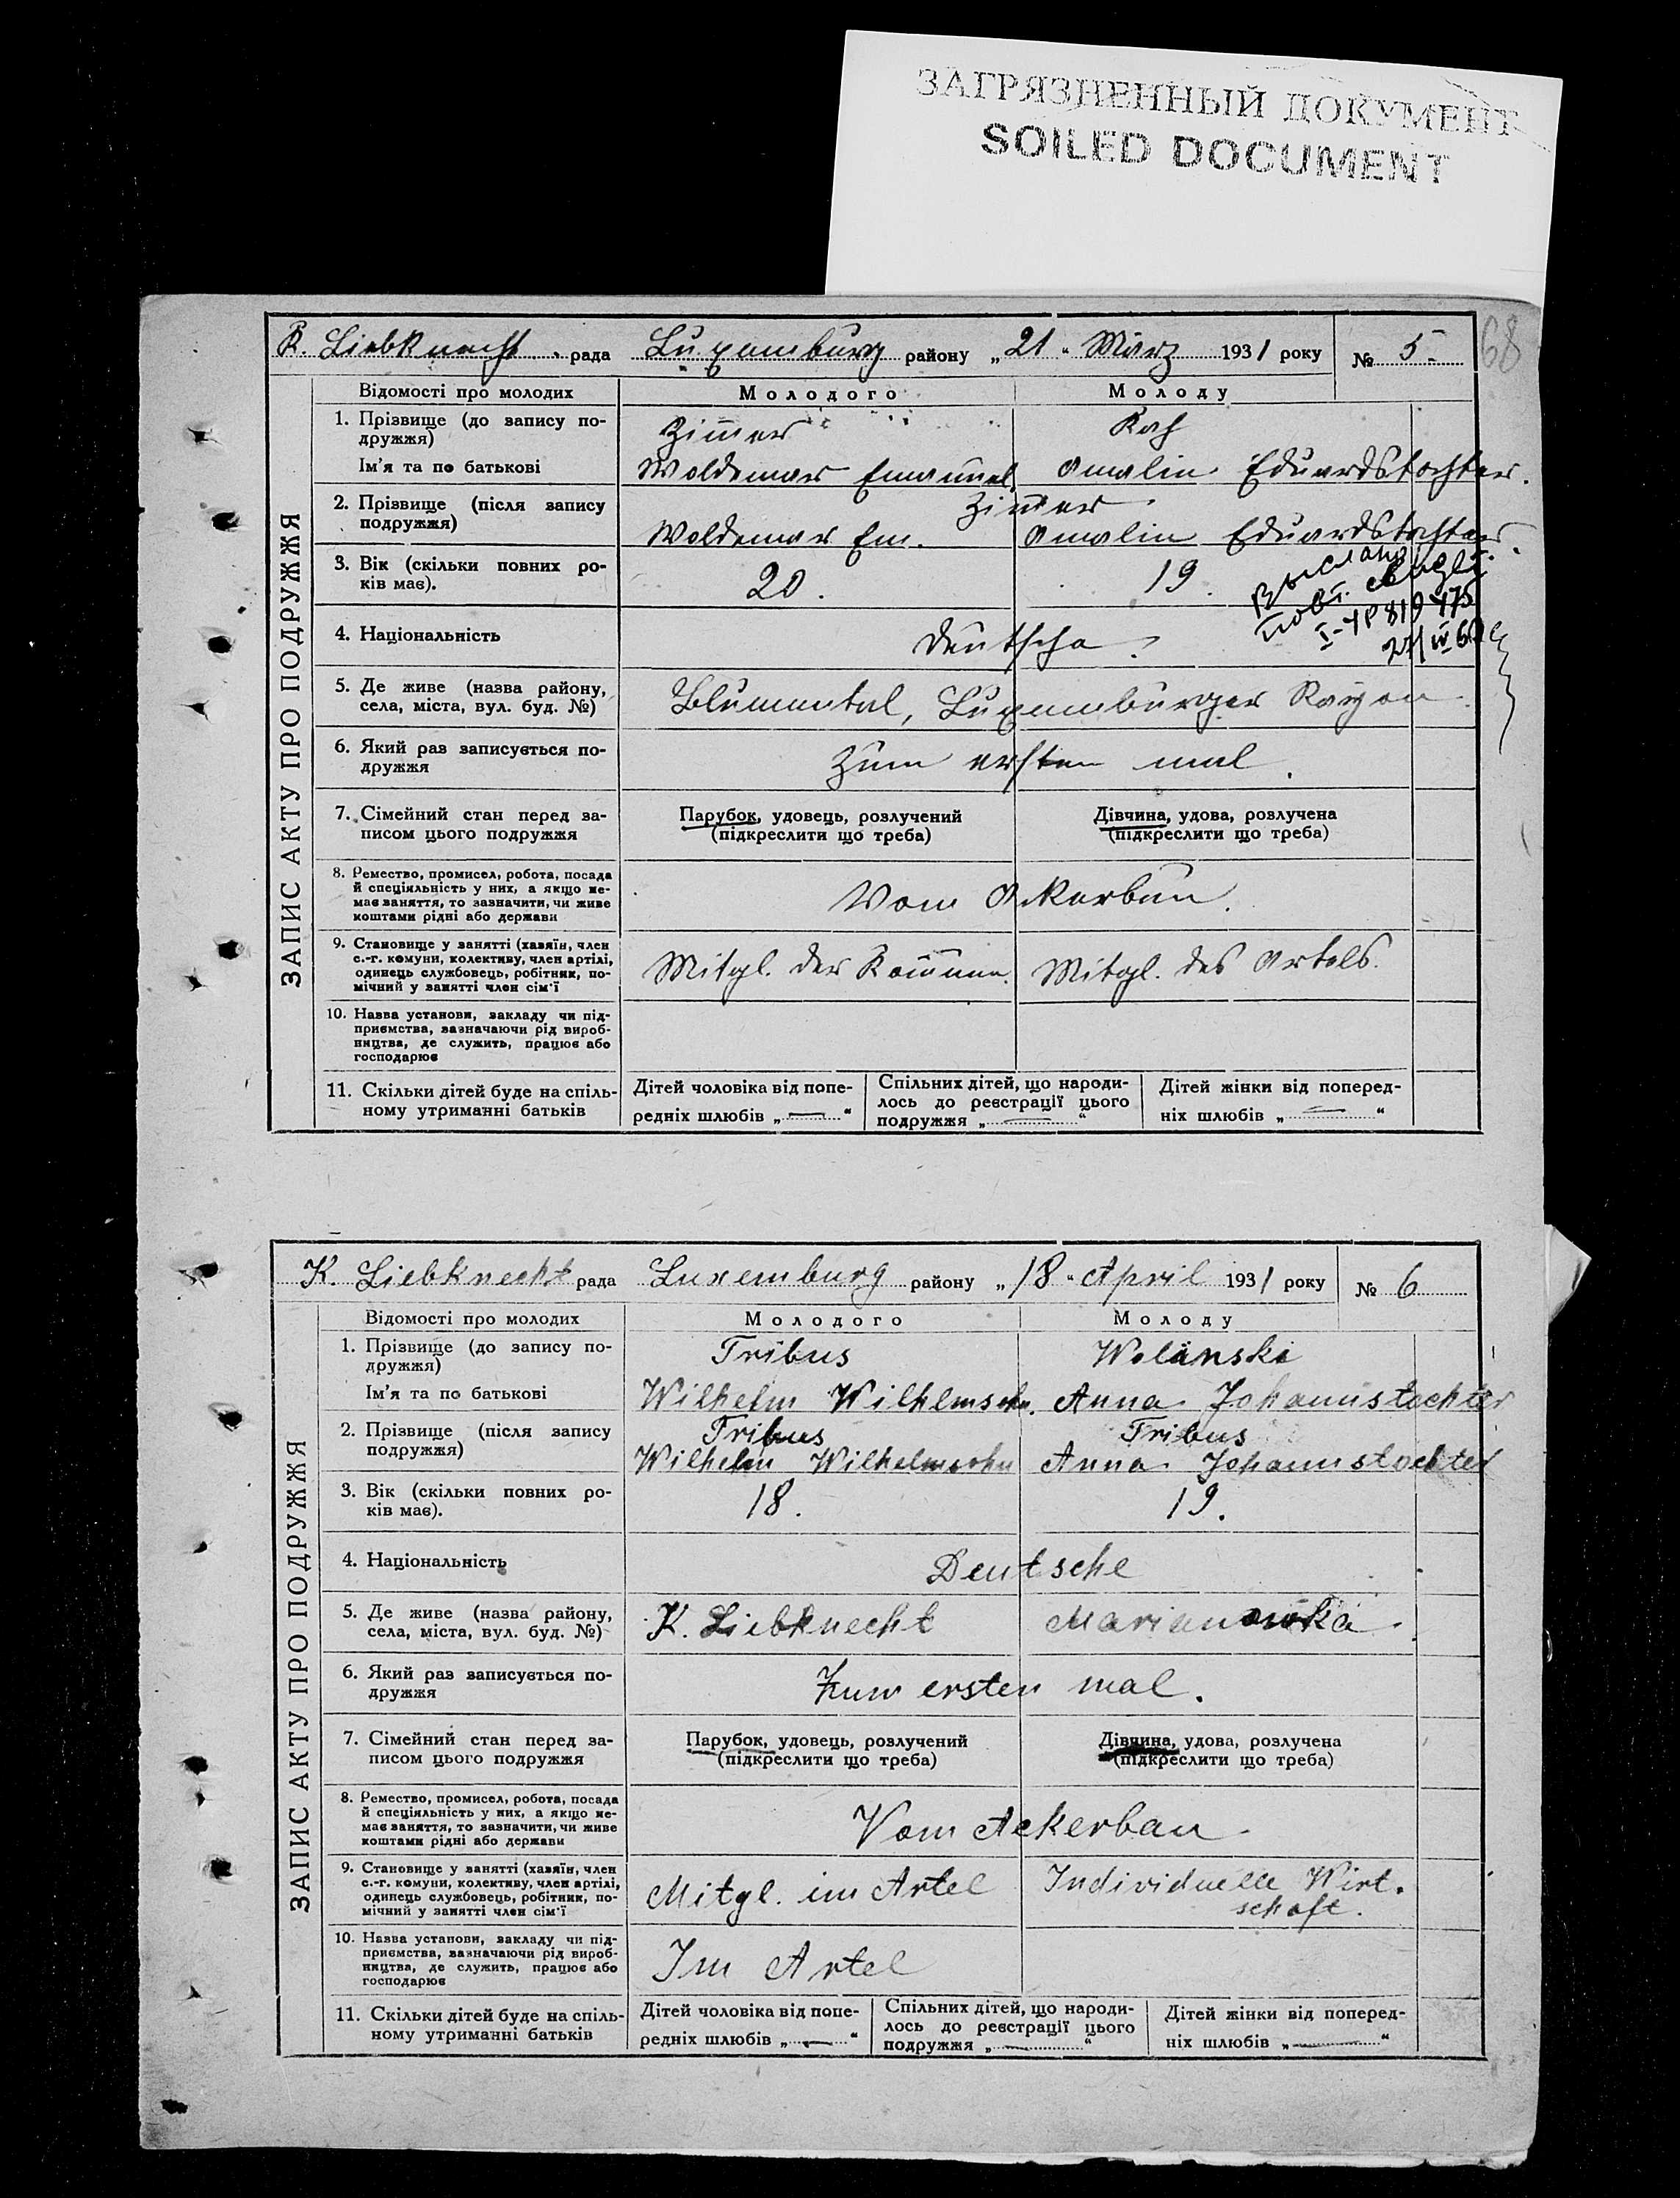 ЗАГРЯЗНЕННЫЙ ДОКУМЕНТ
SOILED DOCUMENT
68
K. Liebknecht рада Luxemburg району „21“ März 1931 року № 5
ЗАПИС АКТУ ПРО ПОДРУЖЖЯ
Відомості про молодих Молодого Молоду
1. Прізвище (до запису по-
дружжя) Zimer
Ім'я та по батькові Woldemar Emanuel. Amalia Eduardstochter.
2. Прізвище (після запису Zimer
подружжя) Woldemar Em. Amalia Eduardstochter.
3. Вік (скільки повних ро-
ків має). 20. 19.
Выслано
повт. свидет.
I-УР 819475
4. Національність Deutsche.
5. Де живе (назва району,
села, міста, вул. буд. №) Blumental, Luxemburger Rayon.
6. Який раз записується по-
дружжя Zum ersten mal.
7. Сімейний стан перед за-
писом цього подружжя
Парубок, удовець, розлучений
(підкреслити що треба)
Дівчина, удова, розлучена
(підкреслити що треба)
8. Ремество, промисел, робота, посада
й спеціяльність у них, а якщо не-
має заняття, то зазначити, чи живе
коштами рідні або держави
Vom Ackerbau.
9. Становище у занятті (хазяїн, член
с.-г. комуни, колективу, член артілі,
одинець службовець, робітник, по-
мічний у занятті член сім'ї
Mitgl. der Komune. Mitgl. des Artels.
10. Назва установи, закладу чи під-
приємства, зазначаючи рід вироб-
ництва, де служить, працює або
господарює
11. Скільки дітей буде на спіль-
ному утриманні батьків
Дітей чоловіка від попе-
редніх шлюбів „—“
Спільних дітей, що народи-
лось до реєстрації цього
подружжя „—“
Дітей жінки від поперед-
ніх шлюбів „—“
K. Liebknecht рада Luxemburg району „18“ April 1931 року № 6
ЗАПИС АКТУ ПРО ПОДРУЖЖЯ
Відомості про молодих Молодого Молоду
1. Прізвище (до запису по-
дружжя) Tribus Wolanski
Ім'я та по батькові Wilhelm Wilhlmsohn. Anna Johannstochter
2. Прізвище (після запису Tribus Tribus
подружжя) Wilhelm Wilhelmsohn Anna Johannstochter
3. Вік (скільки повних ро-
ків має). 18. 19.
4. Національність Deutsche
5. Де живе (назва району,
села, міста, вул. буд. №) K. Liebknecht Marianowka.
6. Який раз записується по-
дружжя Zum ersten mal.
7. Сімейний стан перед за-
писом цього подружжя
Парубок, удовець, розлучений
(підкреслити що треба)
Дівчина, удова, розлучена
(підкреслити що треба)
8. Ремество, промисел, робота, посада
й спеціяльність у них, а якщо не-
має заняття, то зазначити, чи живе
коштами рідні або держави
Vom Ackerbau
9. Становище у занятті (хазяїн, член
с.-г. комуни, колективу, член артілі,
одинець службовець, робітник, по-
мічний у занятті член сім'ї
Mitgl. im Artel Individuelle Wirt.
schaft.
10. Назва установи, закладу чи під-
приємства, зазначаючи рід вироб-
ництва, де служить, працює або
господарює
Im Artel
11. Скільки дітей буде на спіль-
ному утриманні батьків
Дітей чоловіка від попе-
редніх шлюбів „—“
Спільних дітей, що народи-
лось до реєстрації цього
подружжя „—“
Дітей жінки від поперед-
ніх шлюбів „—“